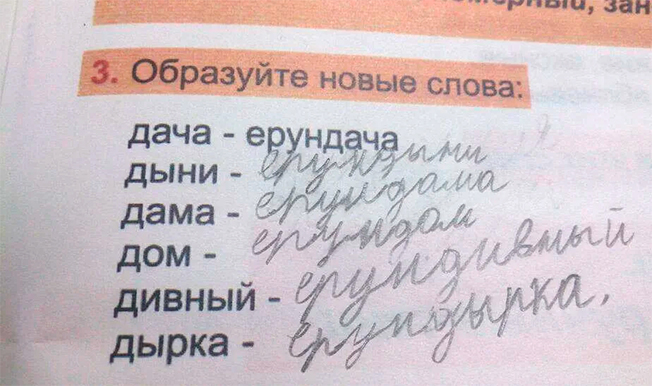 номерный, зан
3. Образуйте новые слова:
дача - ерундача
дыни - ерундыни
дама - ерундама
дом - ерундом
дивный - ерундивный
дырка - ерундырка.